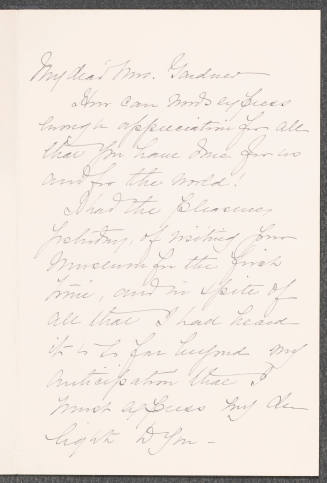 My dear Mrs. Gardner
How can words express
enough appreciation for all
that you have done for us
and for the world!
I had the pleasure,
yesterday, of visiting your
Museum for the first
time, and in spite of
all that I had heard
it is so far beyond my
anticipation that I
must express my de
light to you –